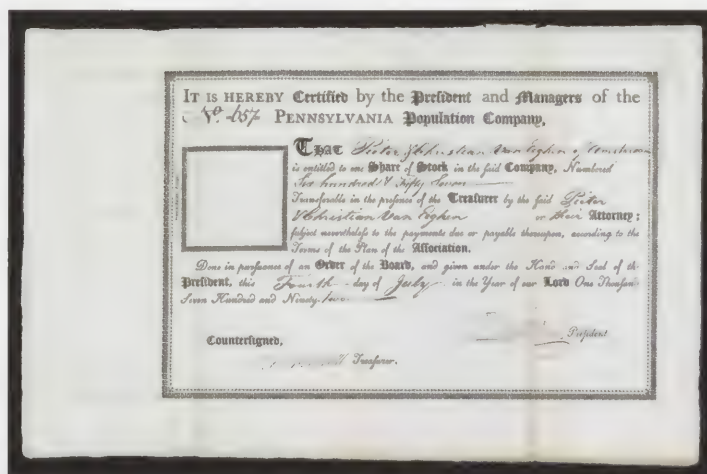 IT IS HEREBY Certified by the President and Managers of the
No. 657 PENNSYLVANIA Population Company,
THAT Pieter & Christian Van Eeghen of Amsterdam
is entitled to one Share of Stock in the said Company, Numbered
Six hundred & Fifty Seven
Transferable in the presence of the Treasurer by the said Pieter
& Christian Van Eeghen or their Attorney;
subject nevertheless to the payments due or payable thereupon, according to the
Terms of the Plan of the Association.
Done in pursuance of an Order of the Board, and given under the Hand and Seal of the
President, this Fourth day of July in the Year of our Lord One Thousand
Seven Hundred and Ninety-two
President
Countersigned,
Treasurer.